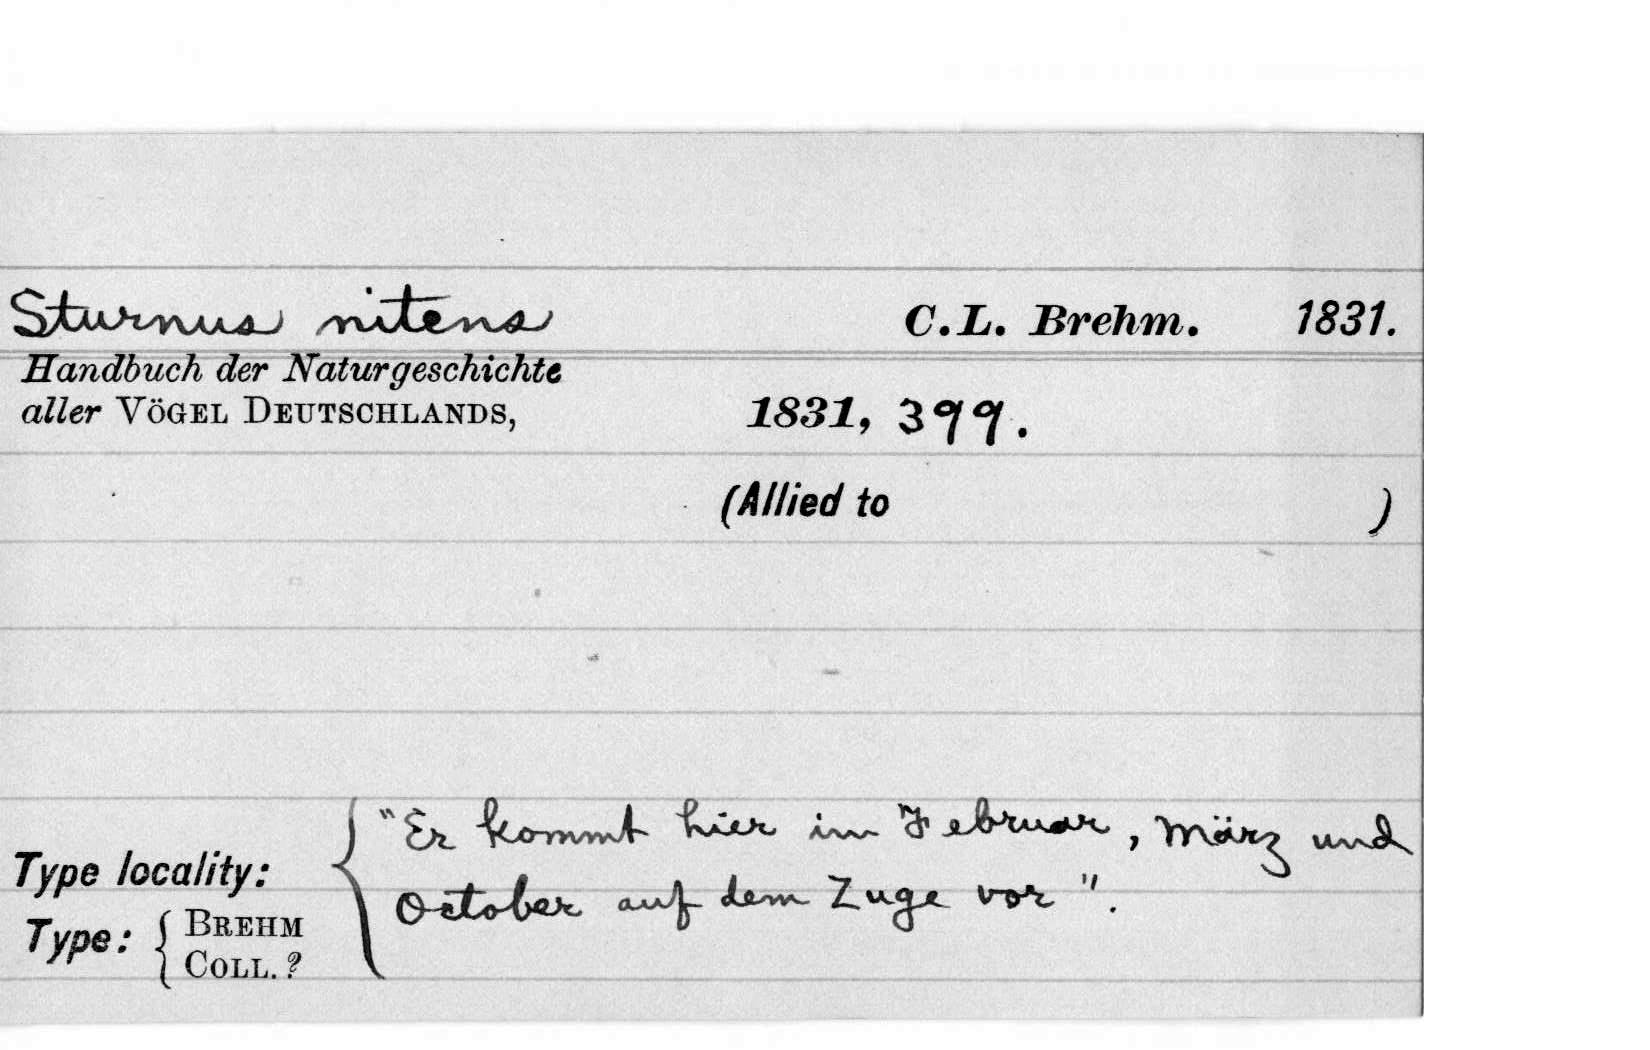 Sturnus nitens C.L. Brehm. 1831.
Handbuch der Naturgeschichte
aller VÖGEL DEUTSCHLANDS, 1831, 399.
(Allied to )
"Er kommt hier im Februar, März und
Type locality:
October auf dem Zuge vor".
Type: { BREHM
COLL. ?